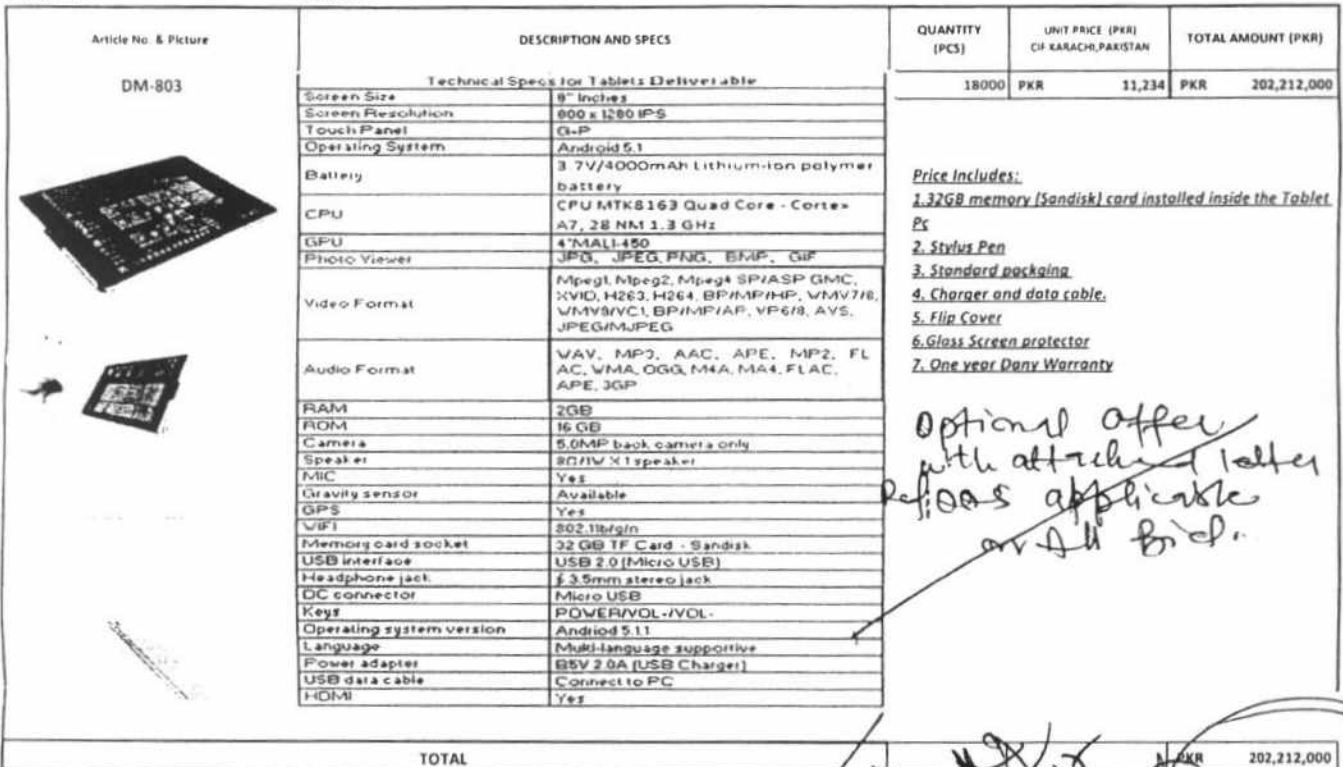 Article No. & Picture
DESCRIPTION AND SPECS
QUANTITY (PCS)
UNIT PRICE (PKR) CIF KARACHI,PAKISTAN
TOTAL AMOUNT (PKR)
DM-803
18000 PKR 11,234 PKR 202,212,000
Technical Specs for Tablets Deliverable
Screen Size 8" Inches
Screen Resolution 800 x 1280 IPS
Touch Panel G+P
Operating System Android 5.1
Battery 3.7V/4000mAh Lithium-ion polymer
battery
CPU CPU MTK8163 Quad Core - Cortex
A7, 28 NM 1.3 GHz
GPU 4*MALI-450
Photo Viewer JPG, JPEG, PNG, BMP, GIF
Video Format Mpeg1, Mpeg2, Mpeg4 SP/ASP GMC,
XVID, H263, H264, BP/MP/HP, WMV7/8,
WMV9/VC1, BP/MP/AP, VP6/8, AVS,
JPEG/MJPEG
Audio Format WAV, MP3, AAC, APE, MP2, FL
AC, WMA, OGG, M4A, MA4, FLAC,
APE, 3GP
RAM 2GB
ROM 16 GB
Camera 5.0MP back camera only
Speaker 8Ω/1W X 1 speaker
MIC Yes
Gravity sensor Available
GPS Yes
WIFI 802.11b/g/n
Memory card socket 32 GB TF Card - Sandisk
USB interface USB 2.0 (Micro USB)
Headphone jack 3.5mm stereo jack
DC connector Micro USB
Keys POWER/VOL-/VOL-
Operating system version Andriod 5.1.1
Language Multi-language supportive
Power adapter B5V 2.0A (USB Charger)
USB data cable Connect to PC
HDMI Yes
Price Includes:
1.32GB memory (Sandisk) card installed inside the Tablet
Pc
2. Stylus Pen
3. Standard packaging
4. Charger and data cable.
5. Flip Cover
6.Glass Screen protector
7. One year Dany Warranty
Optional Offer
with attached letter
applicable
on All
TOTAL PKR 202,212,000